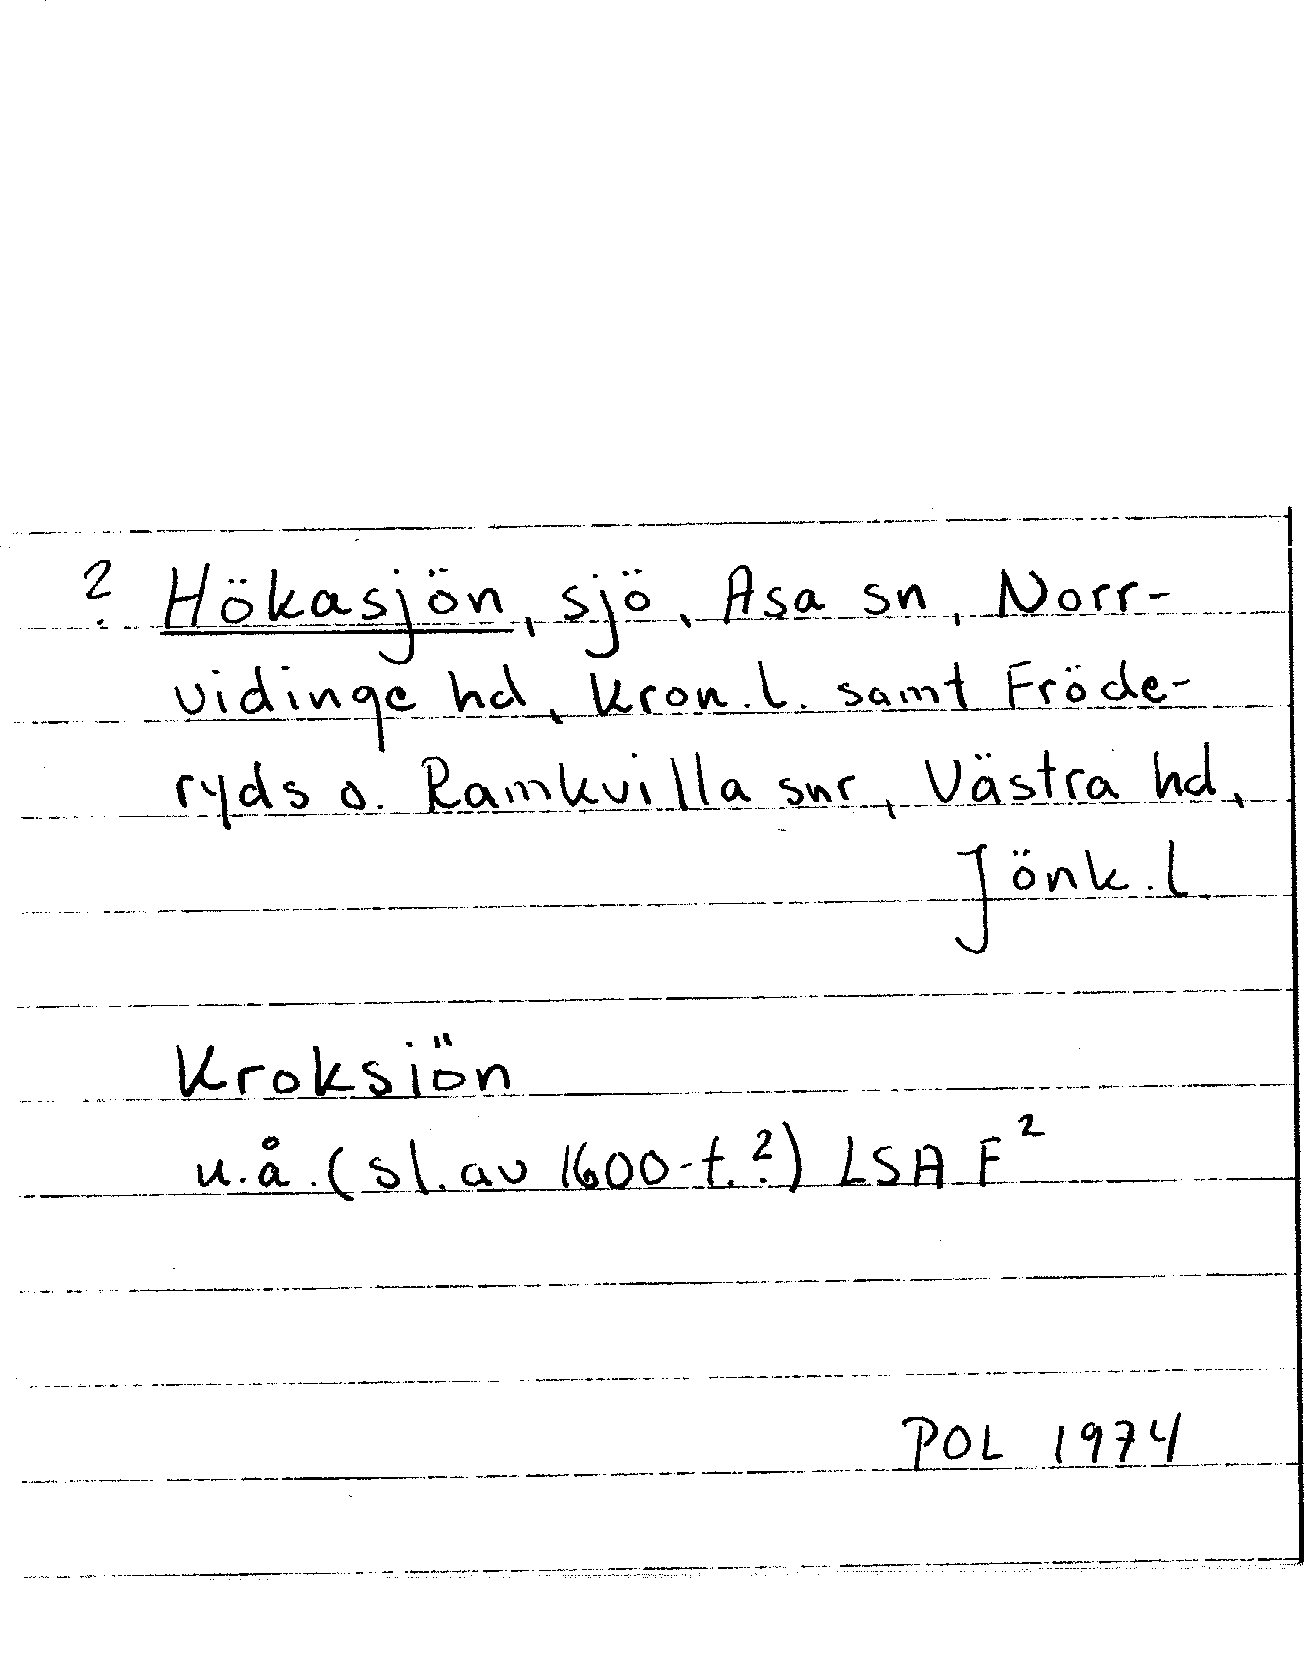 ? Hökasjön, sjö, Asa sn, Norr-
vidinge hd, Kron.l. samt Fröde-
ryds o. Ramkvilla snr, Västra hd,
Jönk.l
Kroksiön
u.å. (sl. av 1600-t.?) LSA F²
POL 1974